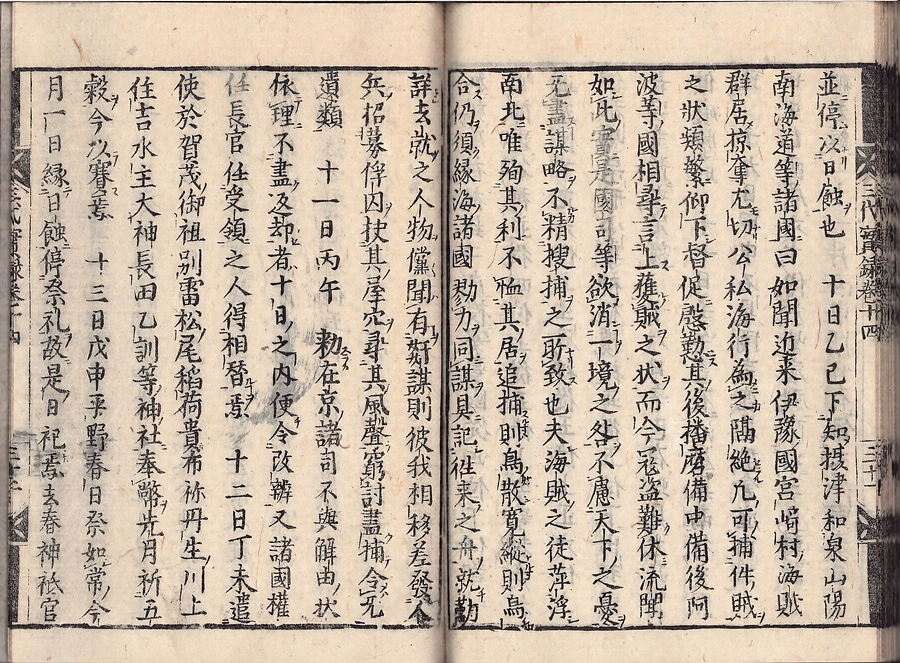 並停以日蝕也 十日乙巳下知摂津和泉山陽
南海道等諸國曰如聞近来伊豫國宮﨑村海賊
群居掠奪尤切公私海行為之隔絶凢可捕件賊
之状頻繁仰下督促慇懃其後播磨備中備後阿
波等國相尋言上獲賊之状而今寇盗難休流聞
如此寔是國司等欲消一境之咎不慮天下之憂
无盡謀略不精捜捕之所致也夫海賊之徒萍浮
南北唯殉其利不恤其居追捕則鳥散寛縦則烏
合仍須縁海諸國勠力同謀具記往来之舟就勤
詳去就之人物儻聞有奸謀則彼我相移差發人
兵招募俘囚扶其犀穴尋其風聲窮討盡捕令无
遺類 十一日丙午 勅在京諸司不與解由状
依理不盡返却者十日之内便令改辨又諸國權
任長官任受領之人得相替焉 十二日丁未遣
使於賀茂御祖別雷松尾稻荷貴布祢丹生川上
住吉水主大神長田乙訓等神社奉幣先月祈五
穀今以賽焉 十三日戊申平野春日祭如常今
月一日縁日蝕停祭礼故是日祀焉去春神祇官
三代實録巻十四
三代實録巻十四